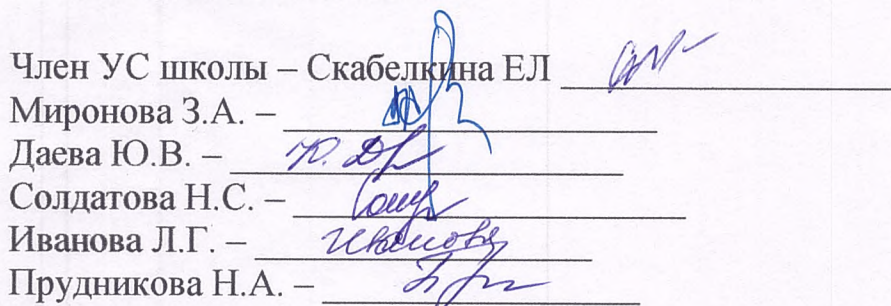 Член УС школы – Скабелкина ЕЛ
Миронова З.А. –
Даева Ю.В. –
Солдатова Н.С. –
Иванова Л.Г. – Иванова
Прудникова Н.А. –